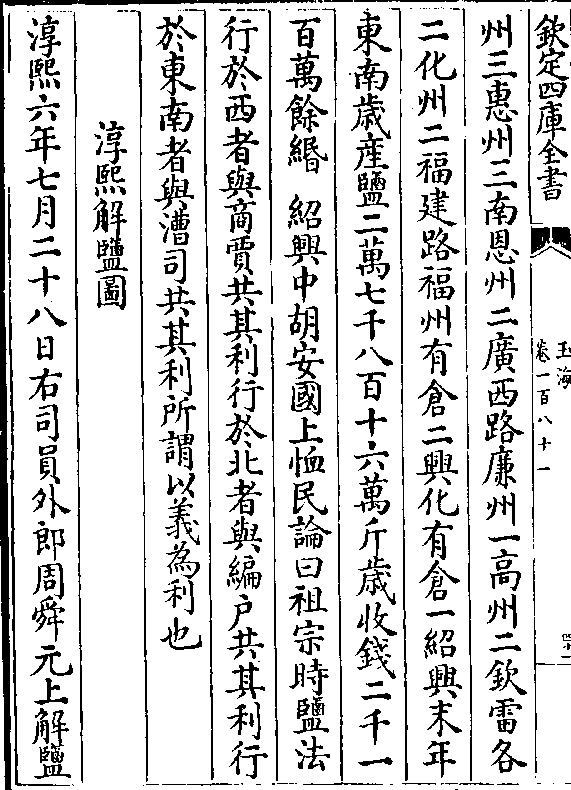 欽定四庫全書
玉海
卷一百八十一
四十一
州三惠州三南恩州二廣西路廉州一高州二欽雷各
二化州二福建路福州有倉二興化有倉一紹興末年
東南歲産鹽二萬七千八百十六萬斤歲收錢二千一
百萬餘緡 紹興中胡安國上恤民論曰祖宗時鹽法
行於西者與商賈共其利行於北者與編户共其利行
於東南者與漕司共其利所謂以義為利也
淳熙解鹽圖
淳熙六年七月二十八日右司員外郎周舜元上解鹽